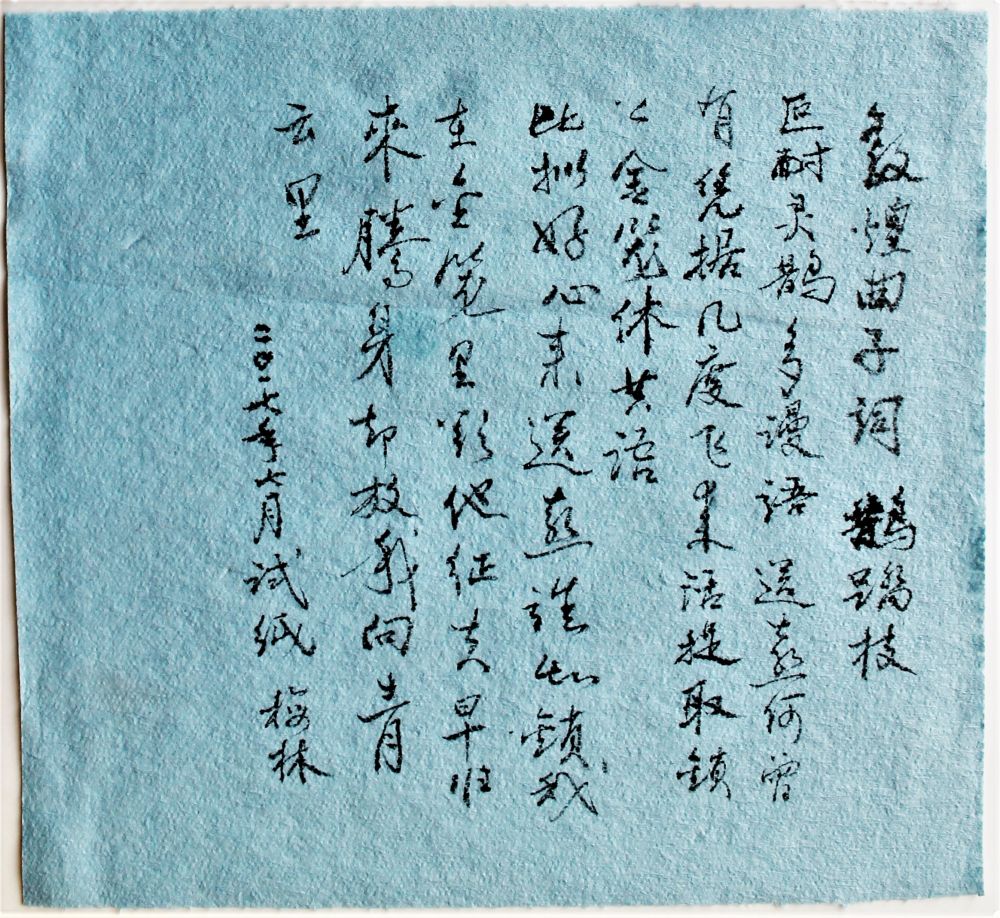 敦煌曲子词 鹊踏枝
叵耐灵鹊多谩语送喜何曾
有凭据几度飞来活捉取鎖
上金笼休共语
比拟好心来送喜谁知鎖我
在金笼里欲他征夫早归
來腾身却放我向青
云里
二〇一七年七月试纸 梅林